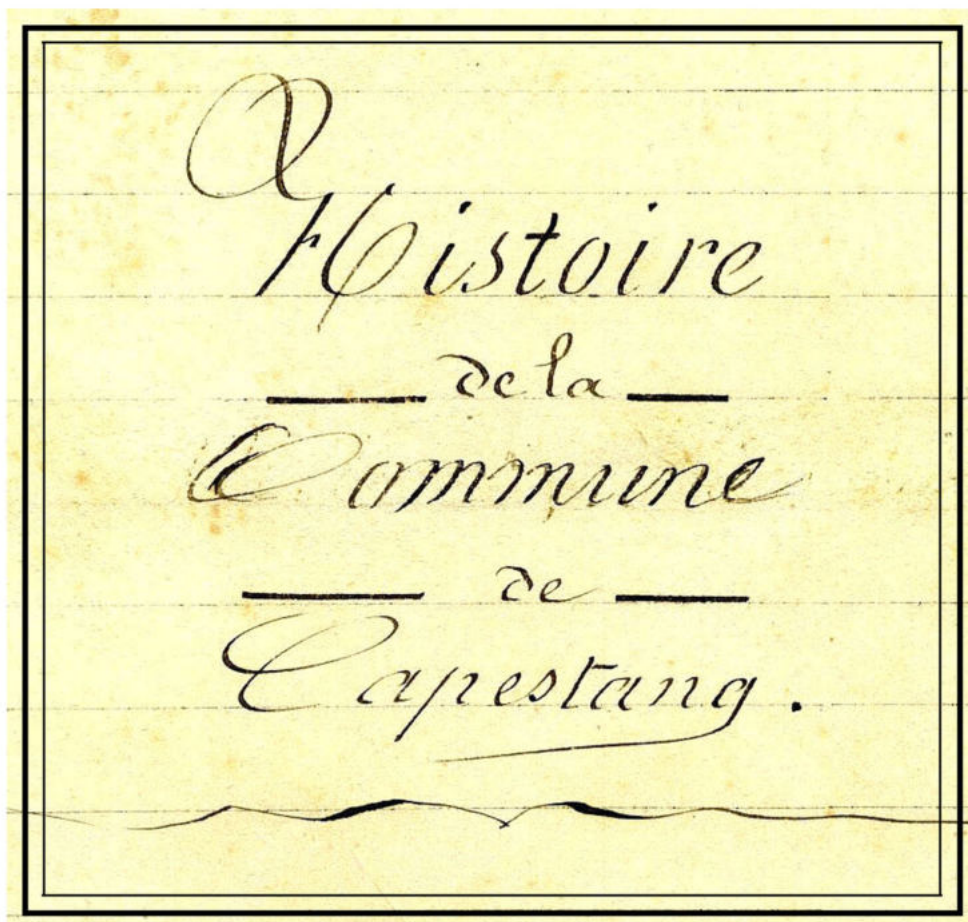 Histoire
de la
Commune
de
Capestang.